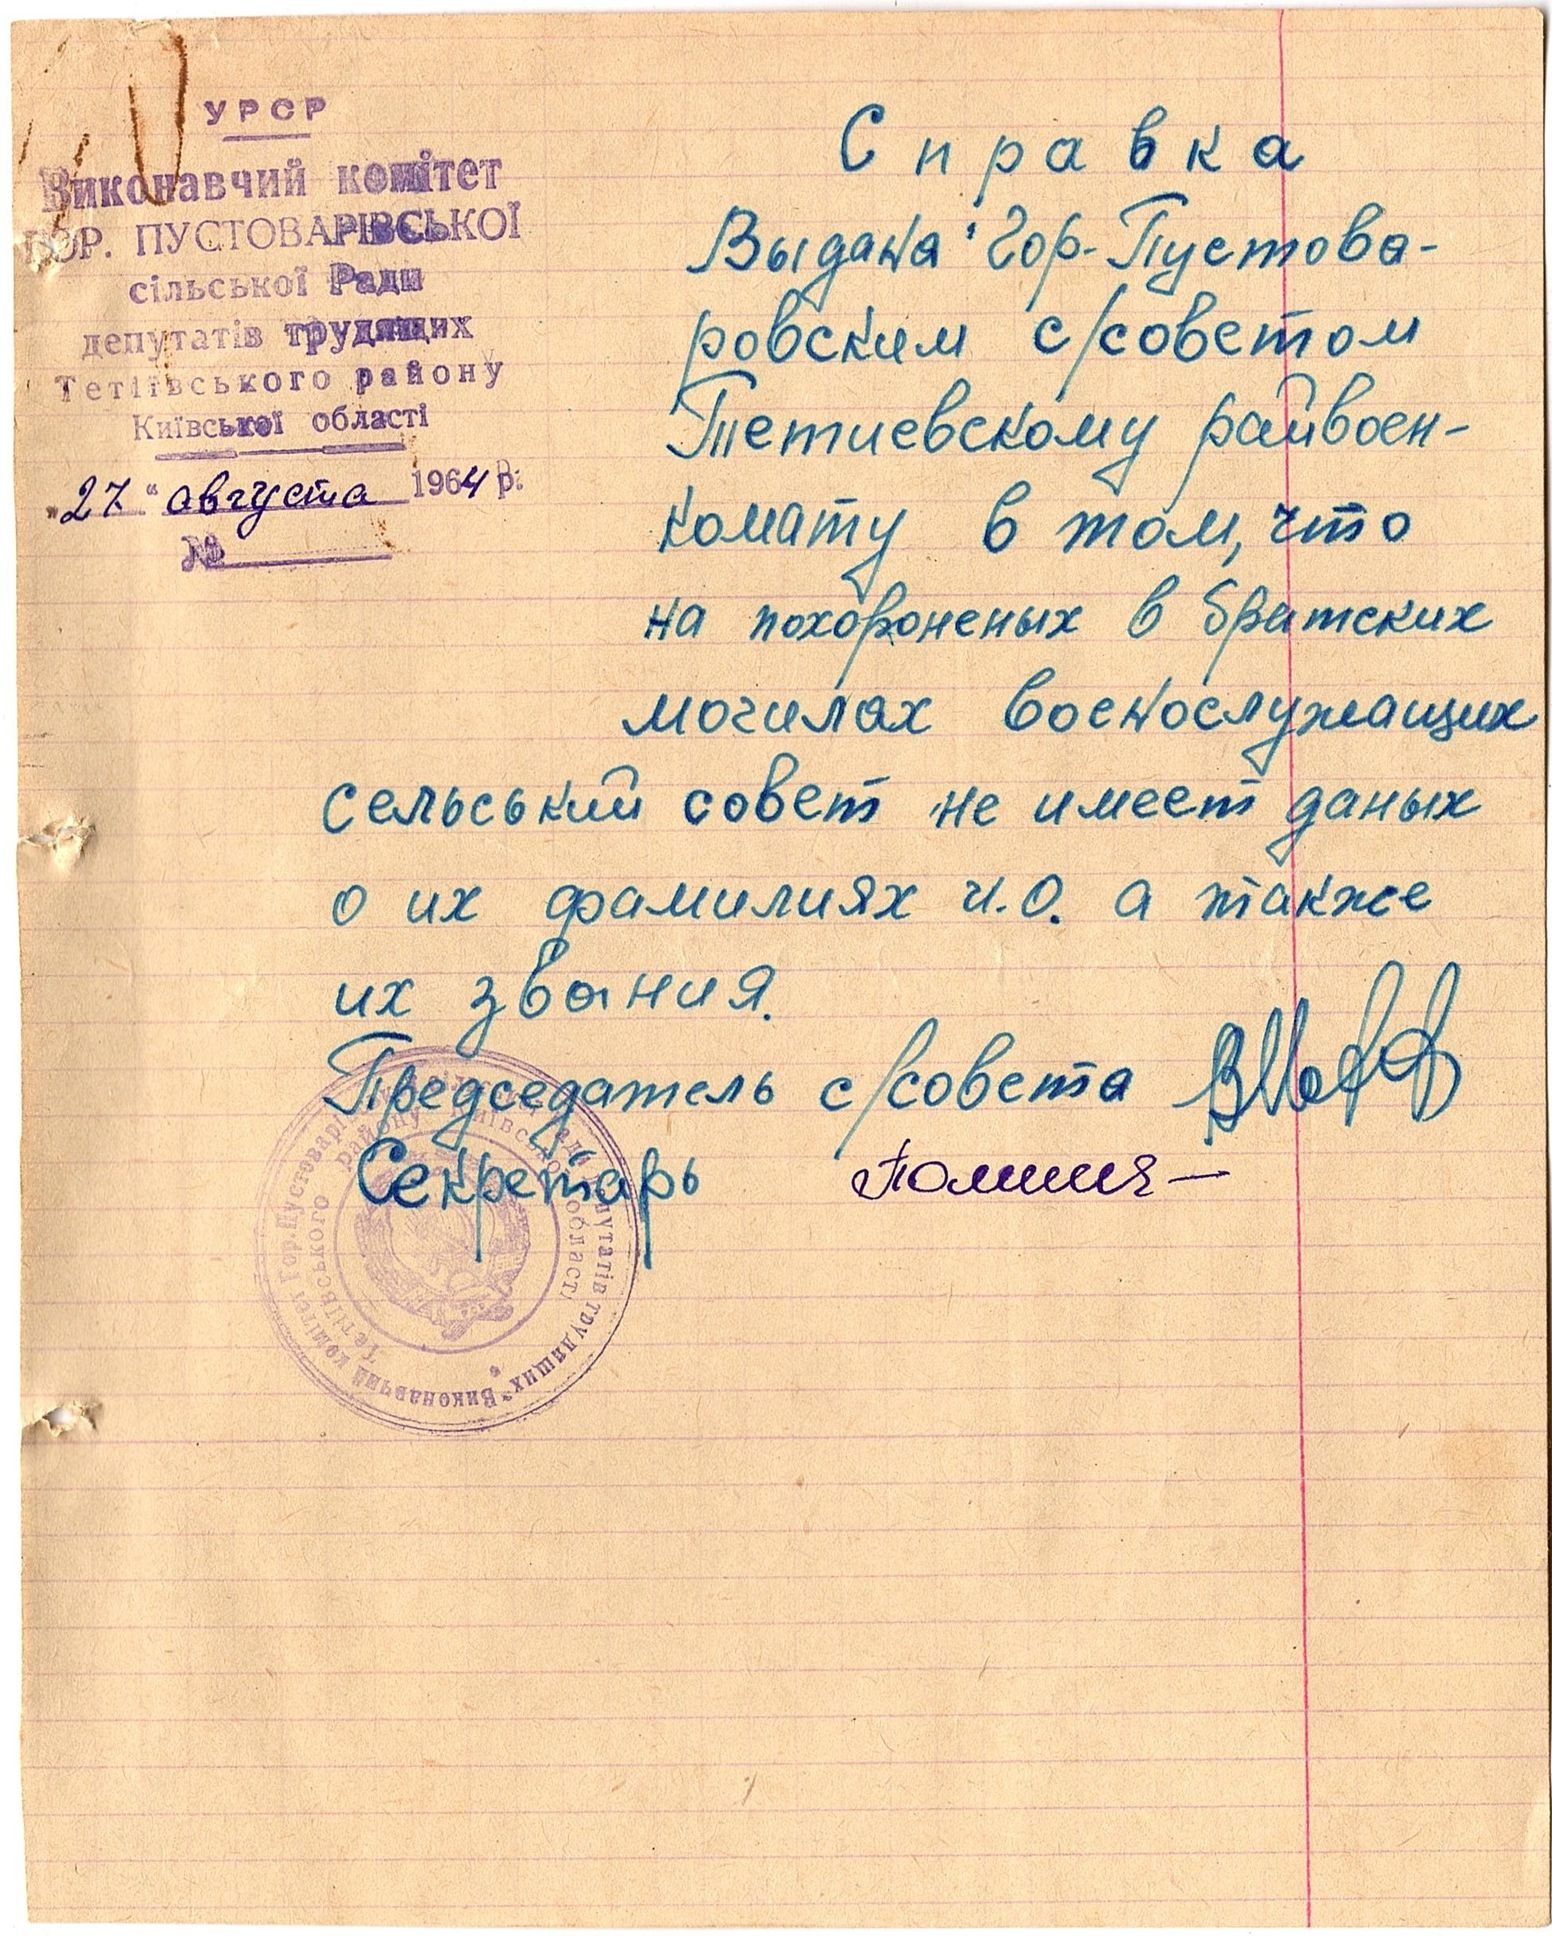 УРСР
Виконавчий комітет
ГОР. ПУСТОВАРІВСЬКОЇ
сільської Ради
депутатів трудящих
Тетіївського району
Київської області
„27“ августа 1964 р.
№
Справка
Выдана Гор-Пустова-
ровским с/советом
Тетиевскому райвоен-
комату в том, что
на похороненых в братских
могилах военослужащих
сельський совет не имеет даных
о их фамилиях и.о. а также
их звания.
Председатель с/совета
Секретарь
Виконавчий комітет Гор.Пустоварів депутатів трудящих
Тетіївського району Київської області